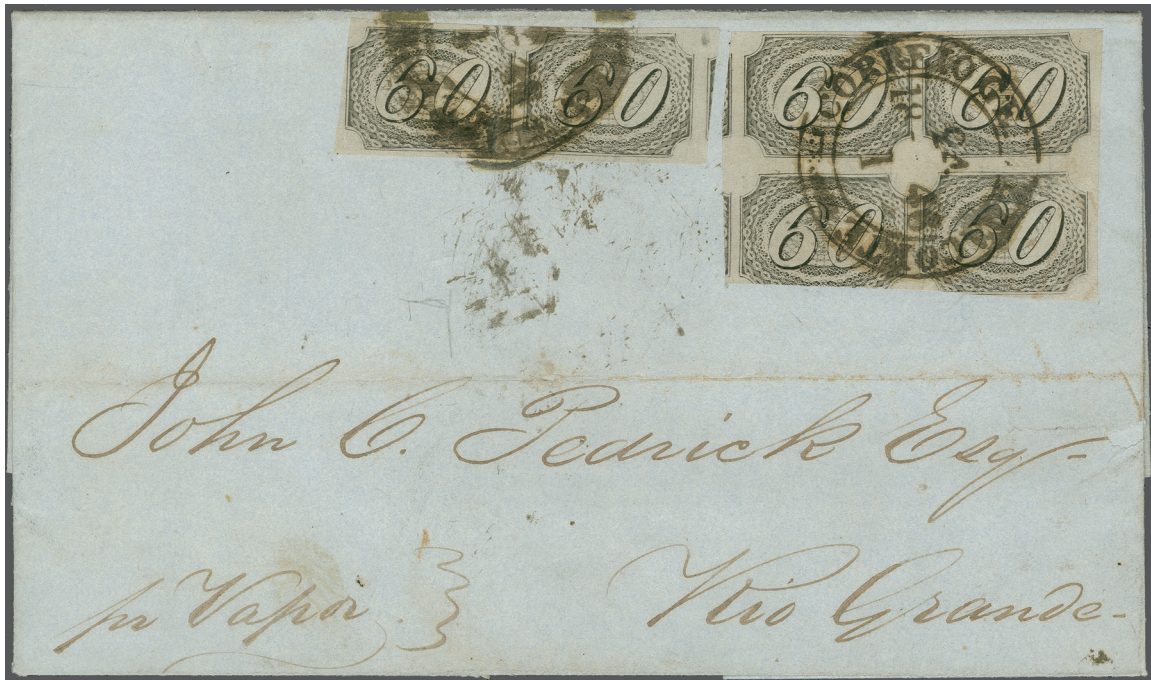 60 60
60 60
60 60
John C. Pedrick Esq-
pr Vapor
Rio Grande-